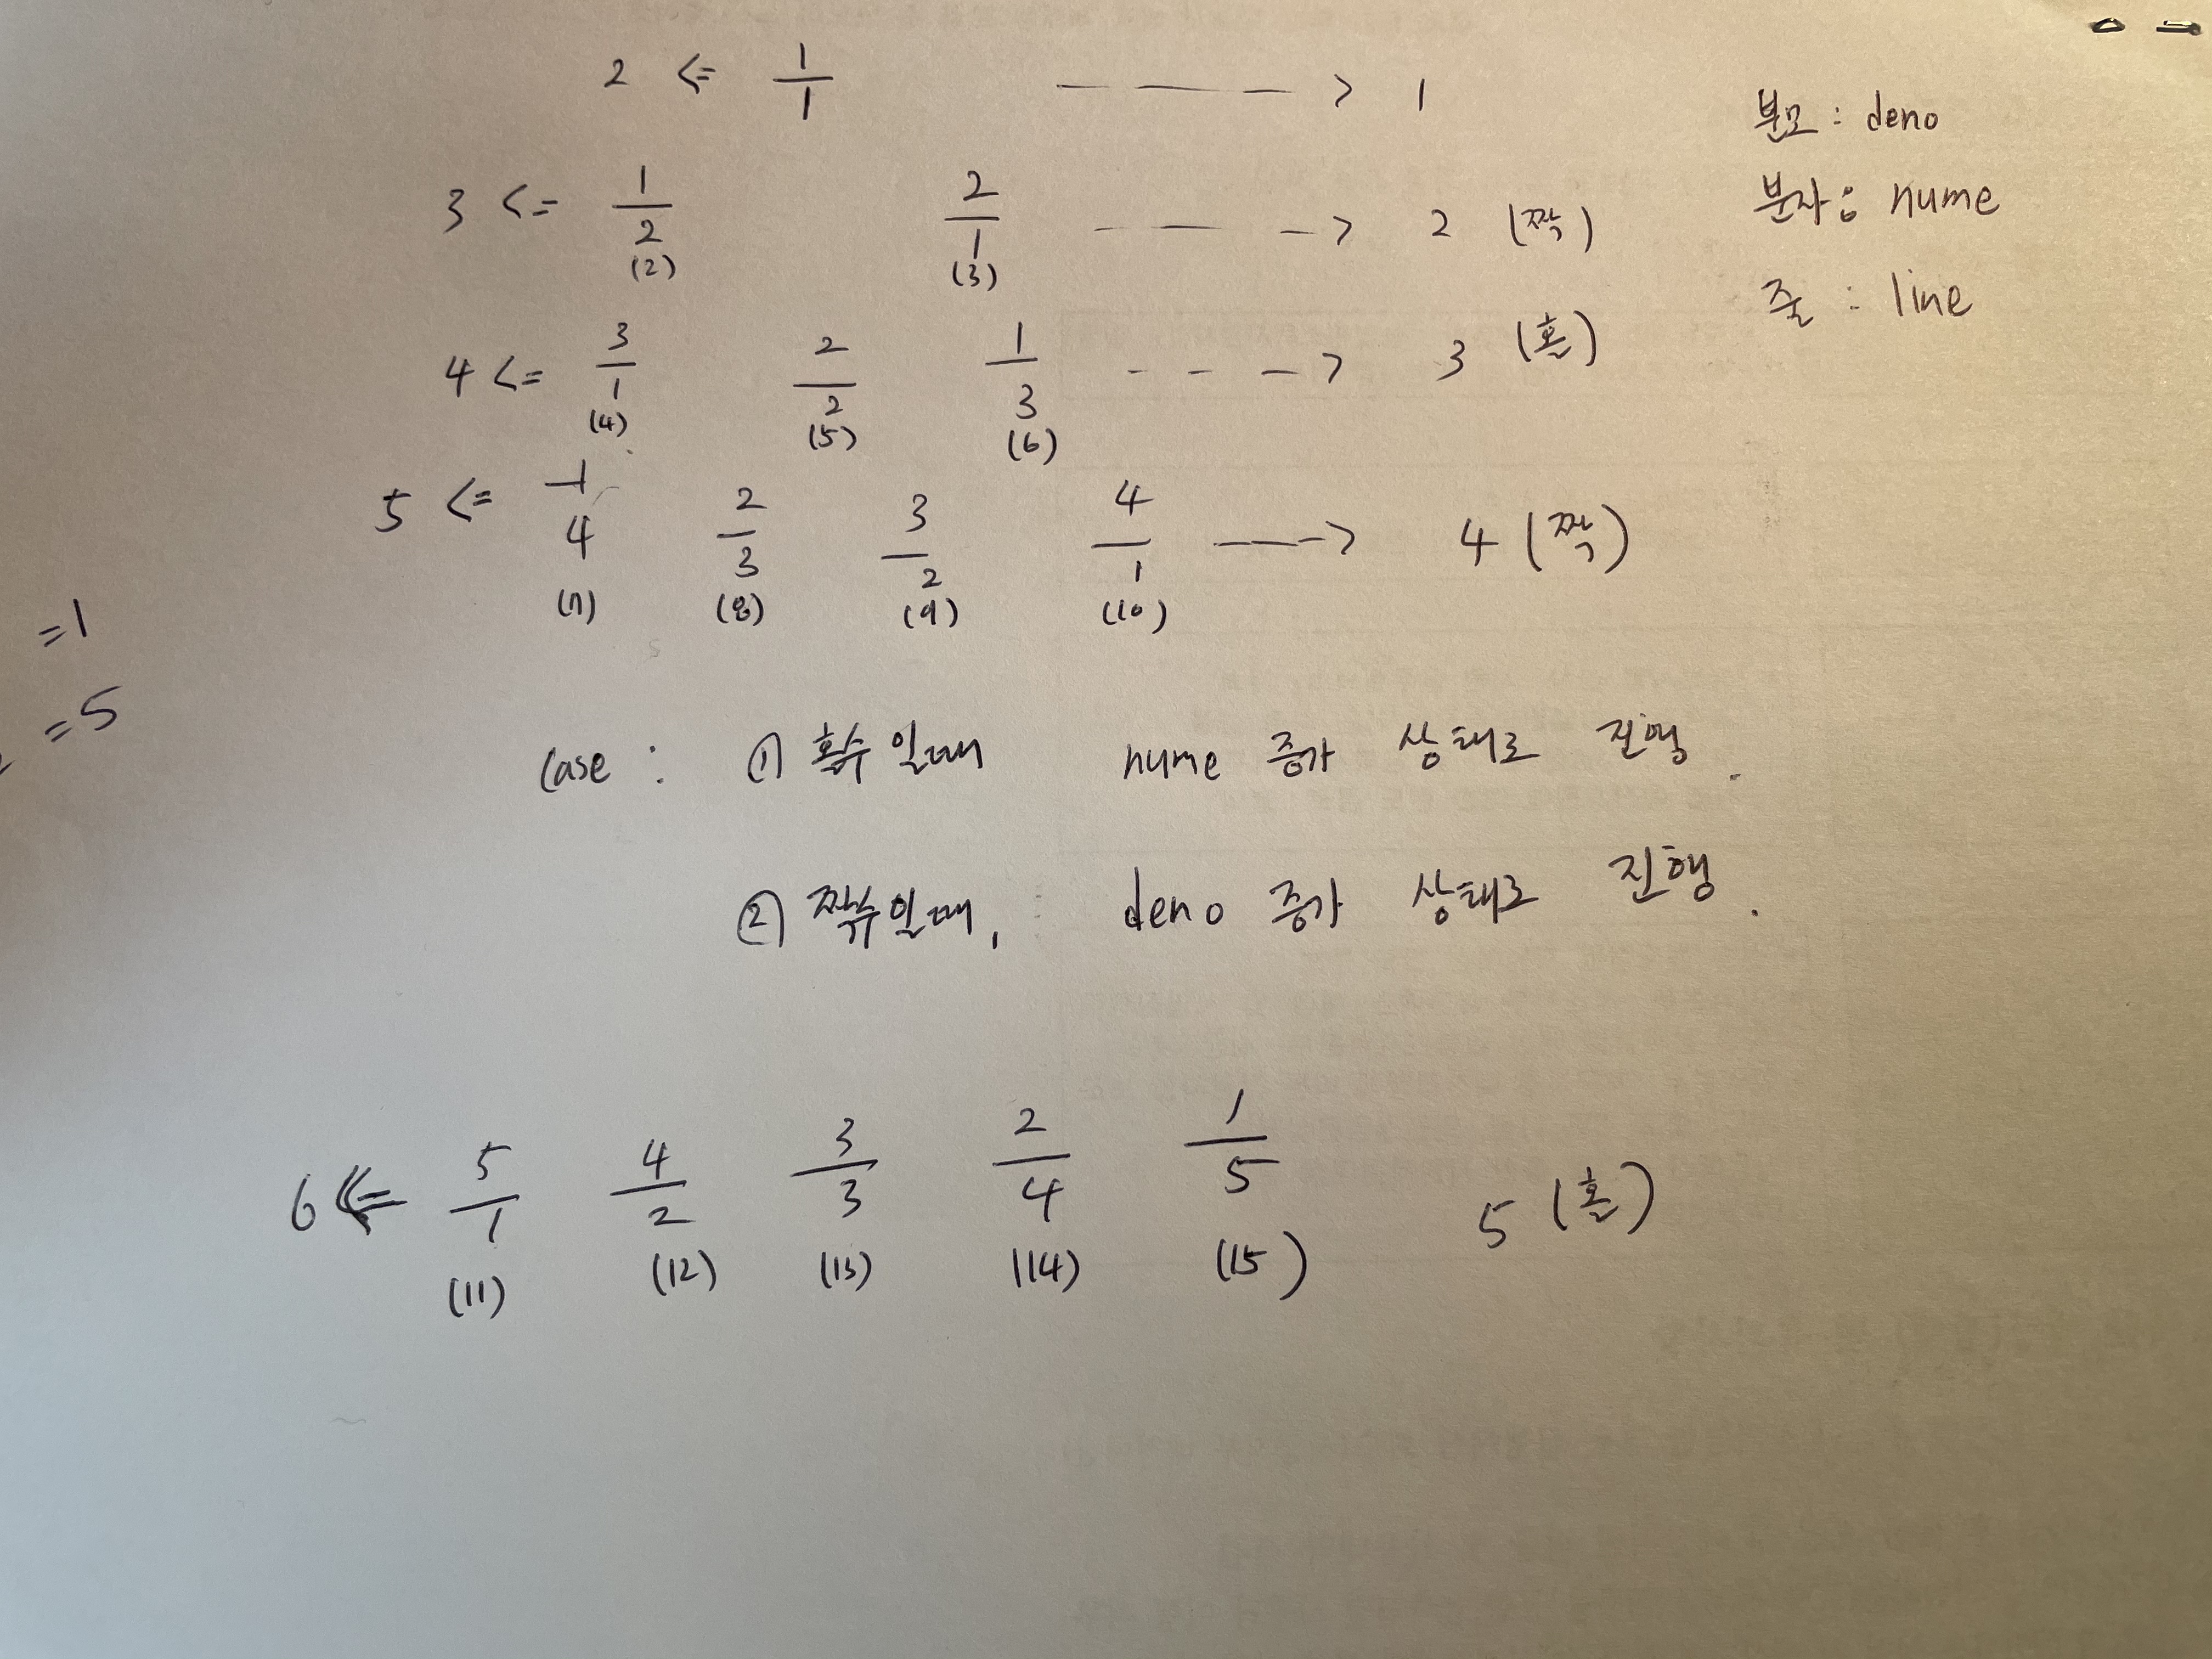 2 <= 1/1 ----> 1
분모 : deno
3 <= 1/2 (2) 2/1 (3) ----> 2 (짝)
분자 : nume
4 <= 3/1 (4) 2/2 (5) 1/3 (6) ---> 3 (홀)
줄 : line
5 <= 1/4 (7) 2/3 (8) 3/2 (9) 4/1 (10) ---> 4 (짝)
=1
=5
case : ① 홀수일때 nume 증가 상태로 진행.
② 짝수일때, deno 증가 상태로 진행.
6 <= 5/1 (11) 4/2 (12) 3/3 (13) 2/4 (14) 1/5 (15) 5 (홀)